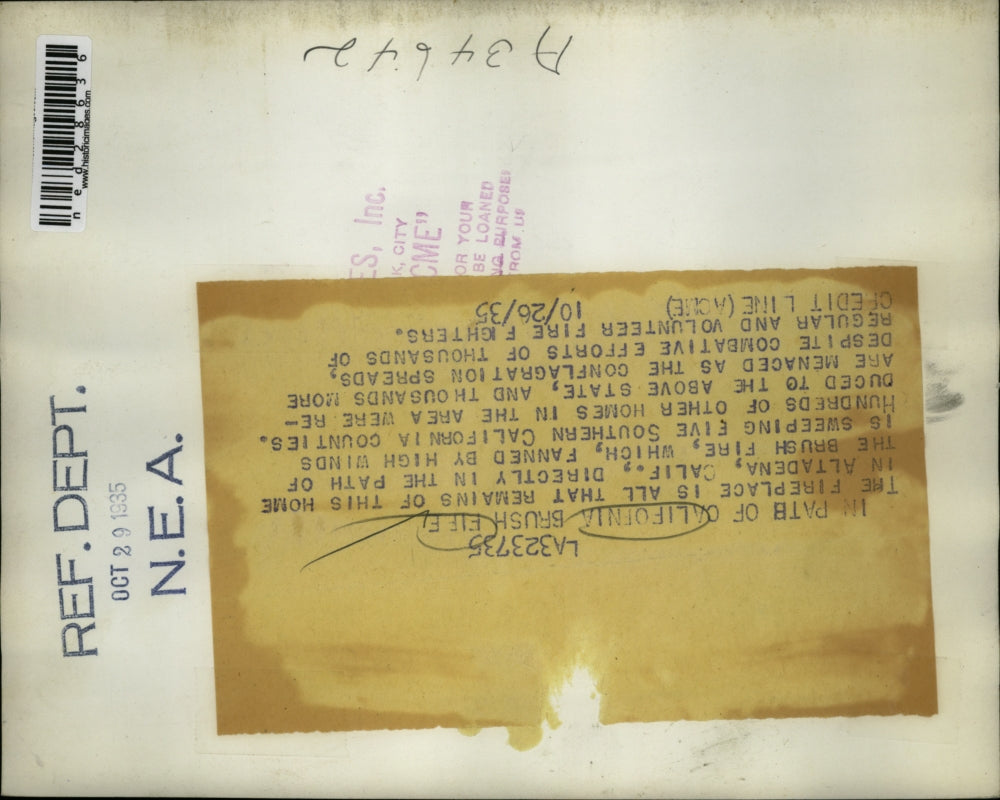 A34642
ned28636
www.historicimages.com
ES, Inc.
K, CITY
CME"
OR YOUR
BE LOANED
NG PURPOSES
FROM US
REF. DEPT.
OCT 29 1935
N.E.A.
LA323735
IN PATH OF CALIFORNIA BRUSH FIFE
THE FIREPLACE IS ALL THAT REMAINS OF THIS HOME
IN ALTADENA, CALIF., DIRECTLY IN THE PATH OF
THE BRUSH FIRE, WHICH, FANNED BY HIGH WINDS
IS SWEEPING FIVE SOUTHERN CALIFORNIA COUNTIES.
HUNDREDS OF OTHER HOMES IN THE AREA WERE RE-
DUCED TO THE ABOVE STATE, AND THOUSANDS MORE
ARE MENACED AS THE CONFLAGRATION SPREADS,
DESPITE COMBATIVE EFFORTS OF THOUSANDS OF
REGULAR AND VOLUNTEER FIRE FIGHTERS.
CREDIT LINE (ACME) 10/26/35